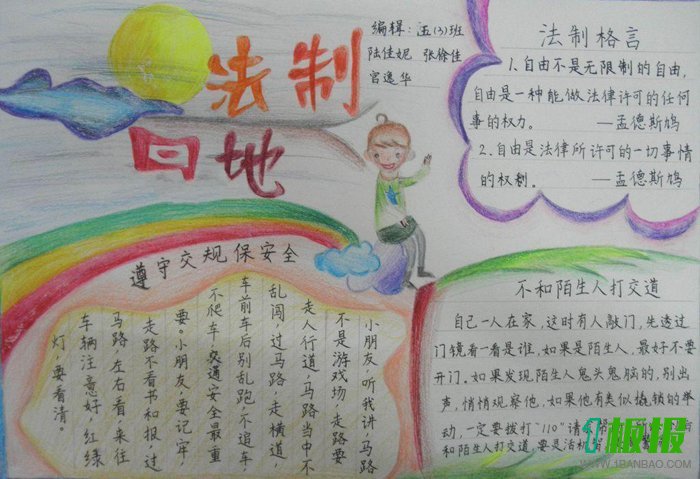 法制
地
编辑：五(3)班
陆佳妮 张徐佳
宫逸华
法制格言
1.自由不是无限制的自由，
自由是一种能做法律许可的任何
事的权力。 —孟德斯鸠
2.自由是法律所许可的一切事情
的权利。 —孟德斯鸠
遵守交规保安全
小朋友，听我讲，马路
不是游戏场，走路要
走人行道，马路当中不
乱闯，过马路，走横道，
车前车后别乱跑，不追车
不爬车，交通安全最重
要。小朋友，要记牢，
走路不看书和报，过
马路，左右看，来往
车辆注意好，红绿
灯，要看清。
不和陌生人打交道
自己一人在家，这时有人敲门，先透过
门镜看一看是谁，如果是陌生人，最好不要
开门。如果发现陌生人鬼头鬼脑的，别出
声，悄悄观察他，如果他有类似撬锁的举
动，一定要拨打"110"请
和陌生人打交道，要灵活机
1板报
WWW.1BANBAO.COM